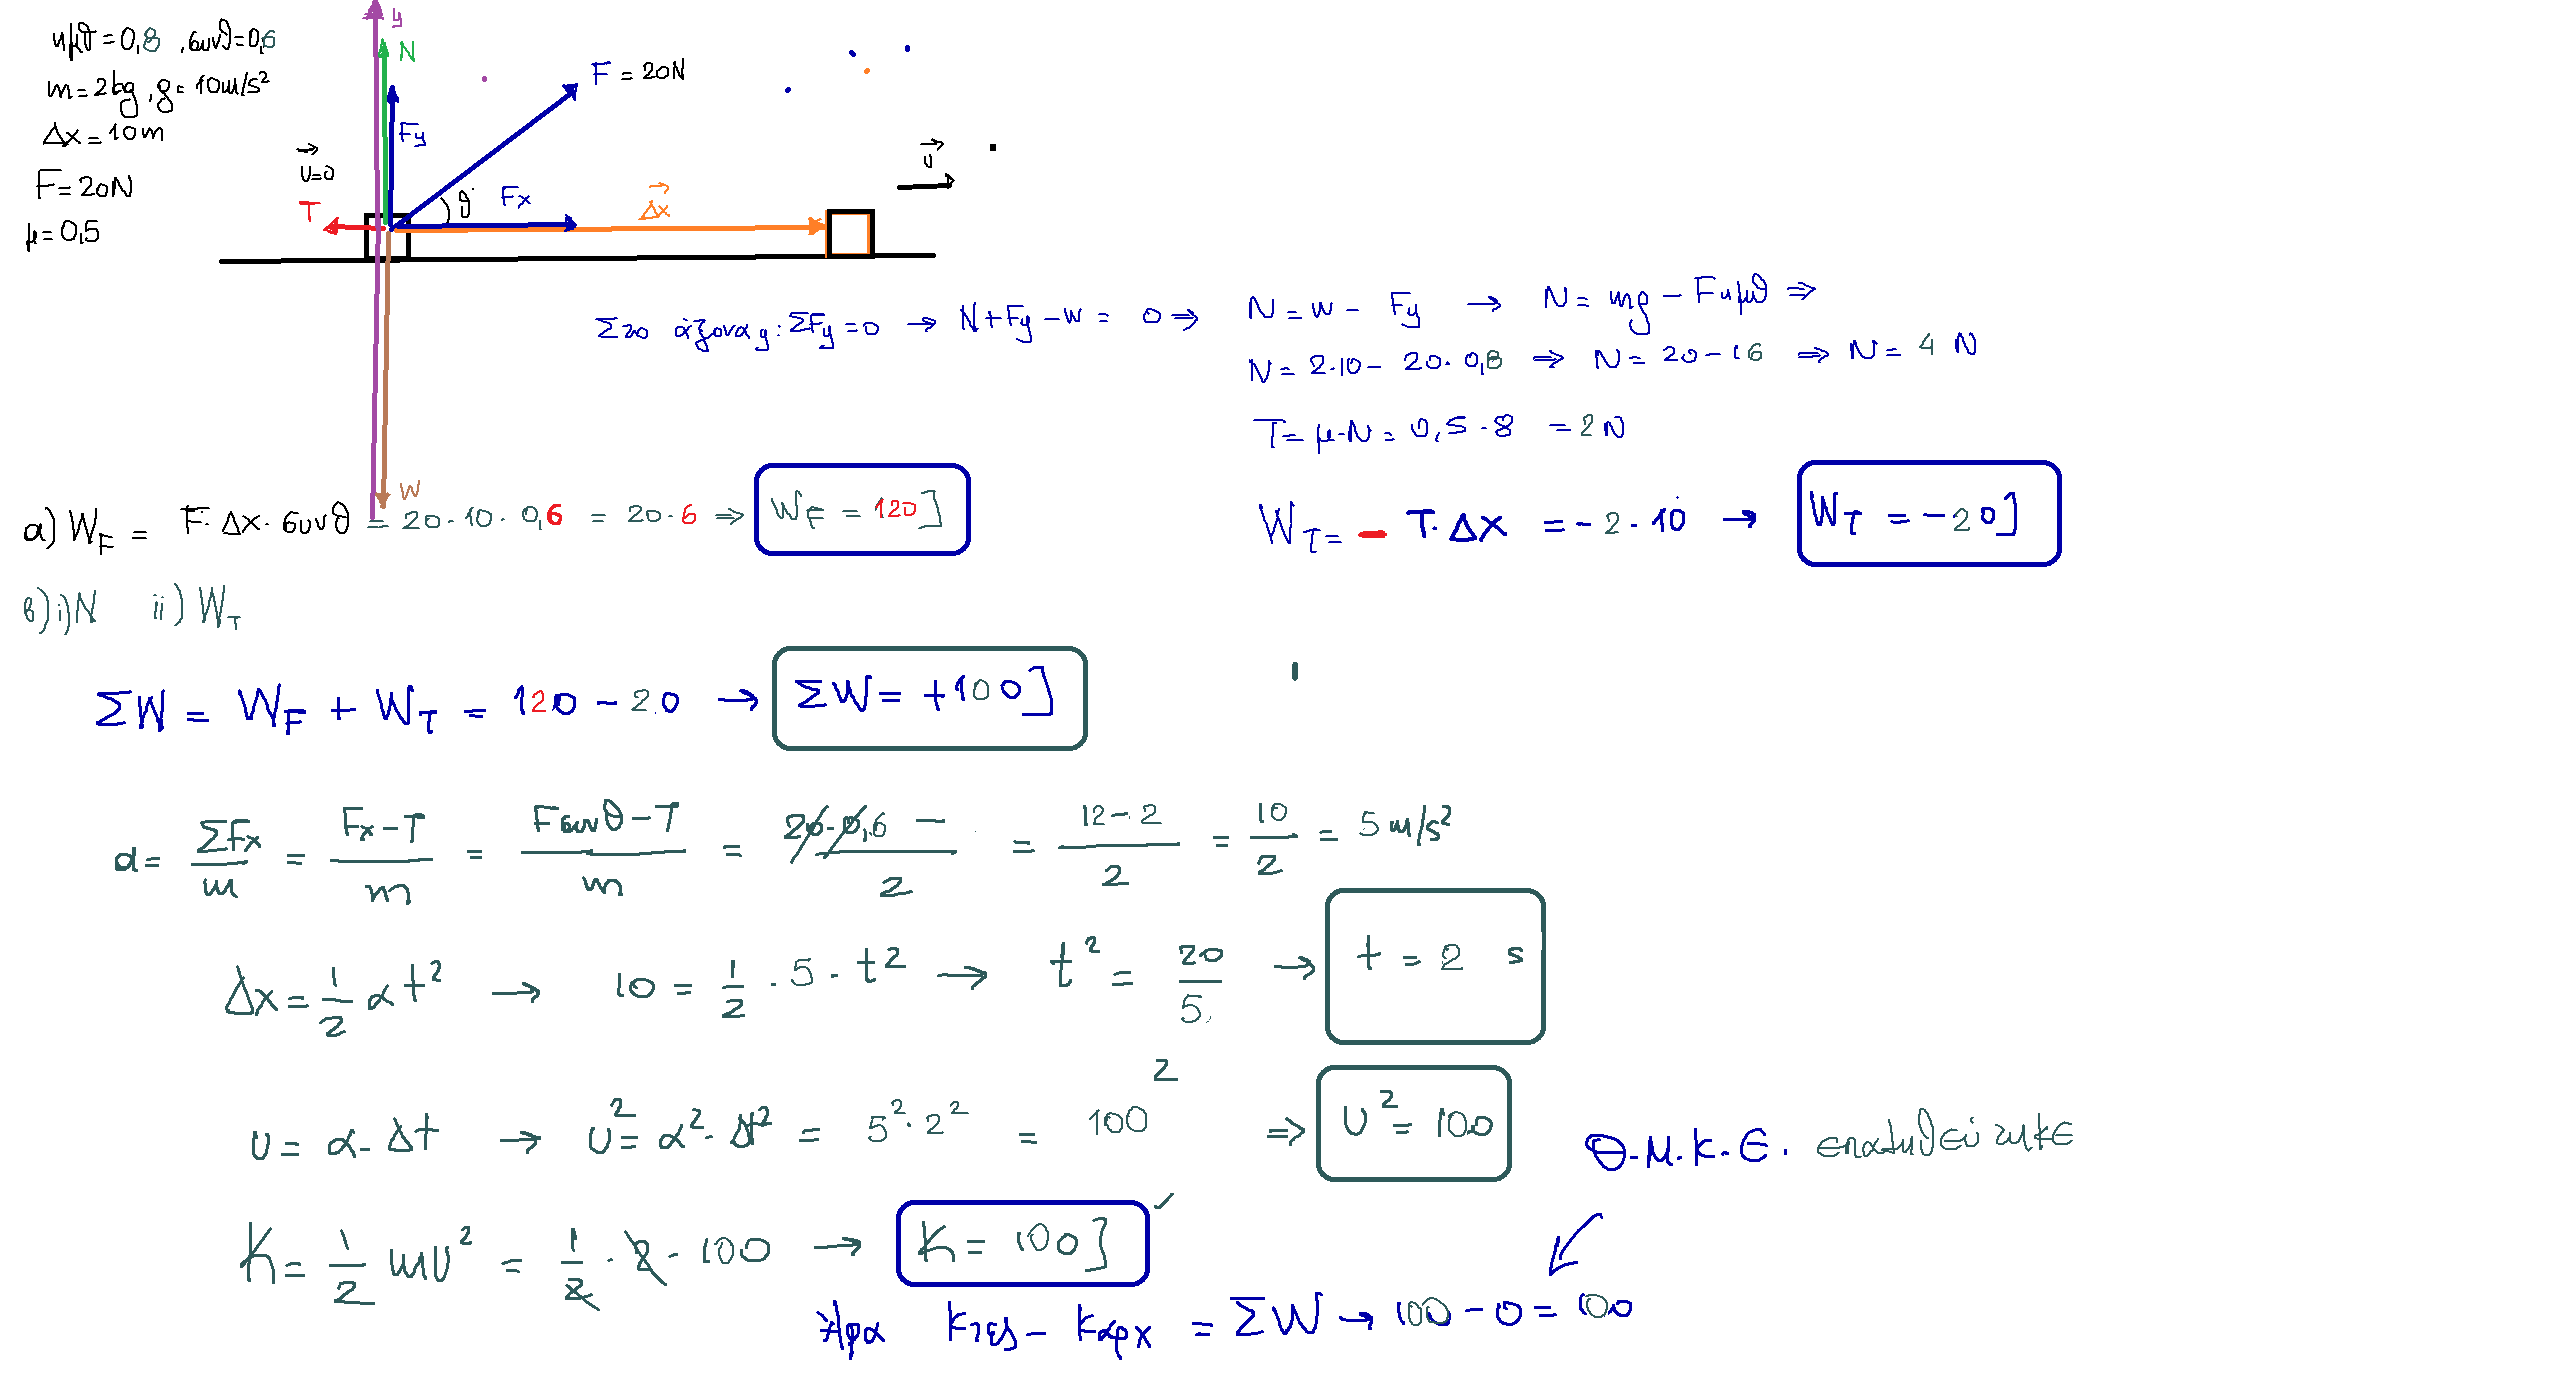 ημθ = 0,8 , συνθ = 0,6
m = 2kg , g = 10m/s²
Δx = 10m
F = 20N
μ = 0,5
y
N
F = 20N
Fy
υ=0
υ
T
θ
Fx
Δx
W
Στο άξονα y: ΣFy = 0 → N + Fy - w = 0 ⇒ N = w - Fy → N = mg - Fημθ ⇒
N = 2·10 - 20·0,8 ⇒ N = 20 - 16 ⇒ N = 4 N
T = μ·N = 0,5·8 = 2N
α) W_F = F·Δx·συνθ = 20·10·0,6 = 20·6 ⇒ W_F = 120J
W_T = - T·Δx = -2·10 → W_T = -20J
β) i) N ii) W_T
ΣW = W_F + W_T = 120 - 20 → ΣW = +100J
α = ΣFx/m = Fx-T/m = Fσυνθ-T/m = 20·0,6 - /2 = 12-2/2 = 10/2 = 5 m/s²
Δx = 1/2 α t² → 10 = 1/2 · 5 · t² → t² = 20/5 → t = 2 s
υ = α·Δt → υ² = α²·Δt² = 5²·2² = 100² ⇒ υ² = 100
Θ.Μ.Κ.Ε. επαληθεύτηκε
K = 1/2 mυ² = 1/2 · 2 · 100 → K = 100J
Άρα Kτελ - Kαρχ = ΣW → 100 - 0 = 100